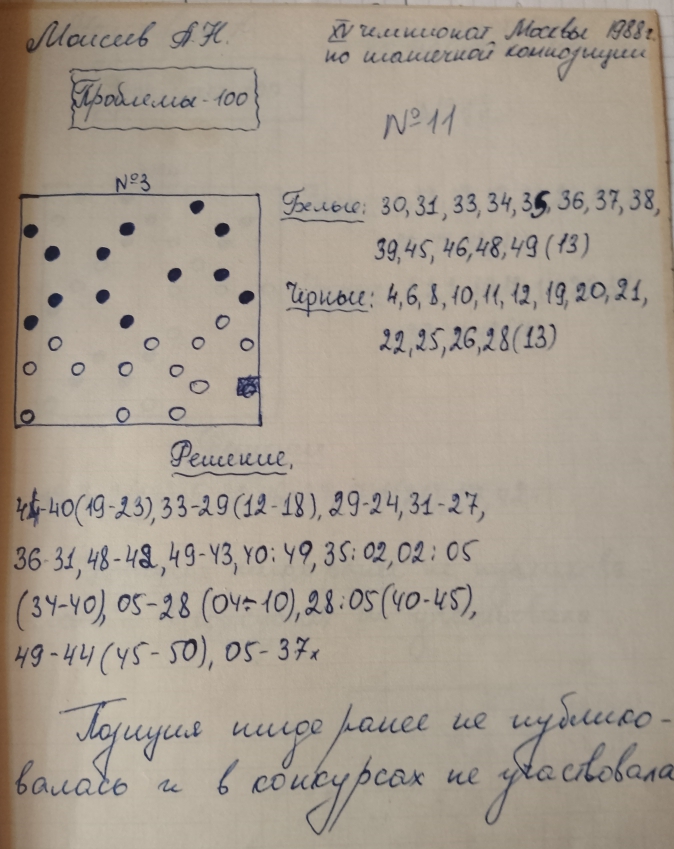 Моисеев А.Н.
XV чемпионат Москвы 1988г.
по шашечной композиции
Проблемы-100
№11
№3
Белые: 30, 31, 33, 34, 35, 36, 37, 38,
39, 45, 46, 48, 49 (13)
Чёрные: 4, 6, 8, 10, 11, 12, 19, 20, 21,
22, 25, 26, 28 (13)
Решение.
45-40 (19-23), 33-29 (12-18), 29-24, 31-27,
36-31, 48-42, 49-43, 40:49, 35:02, 02:05
(34-40), 05-28 (04-10), 28:05 (40-45),
49-44 (45-50), 05-37x
Позиция нигде ранее не публико-
валась и в конкурсах не участвовала